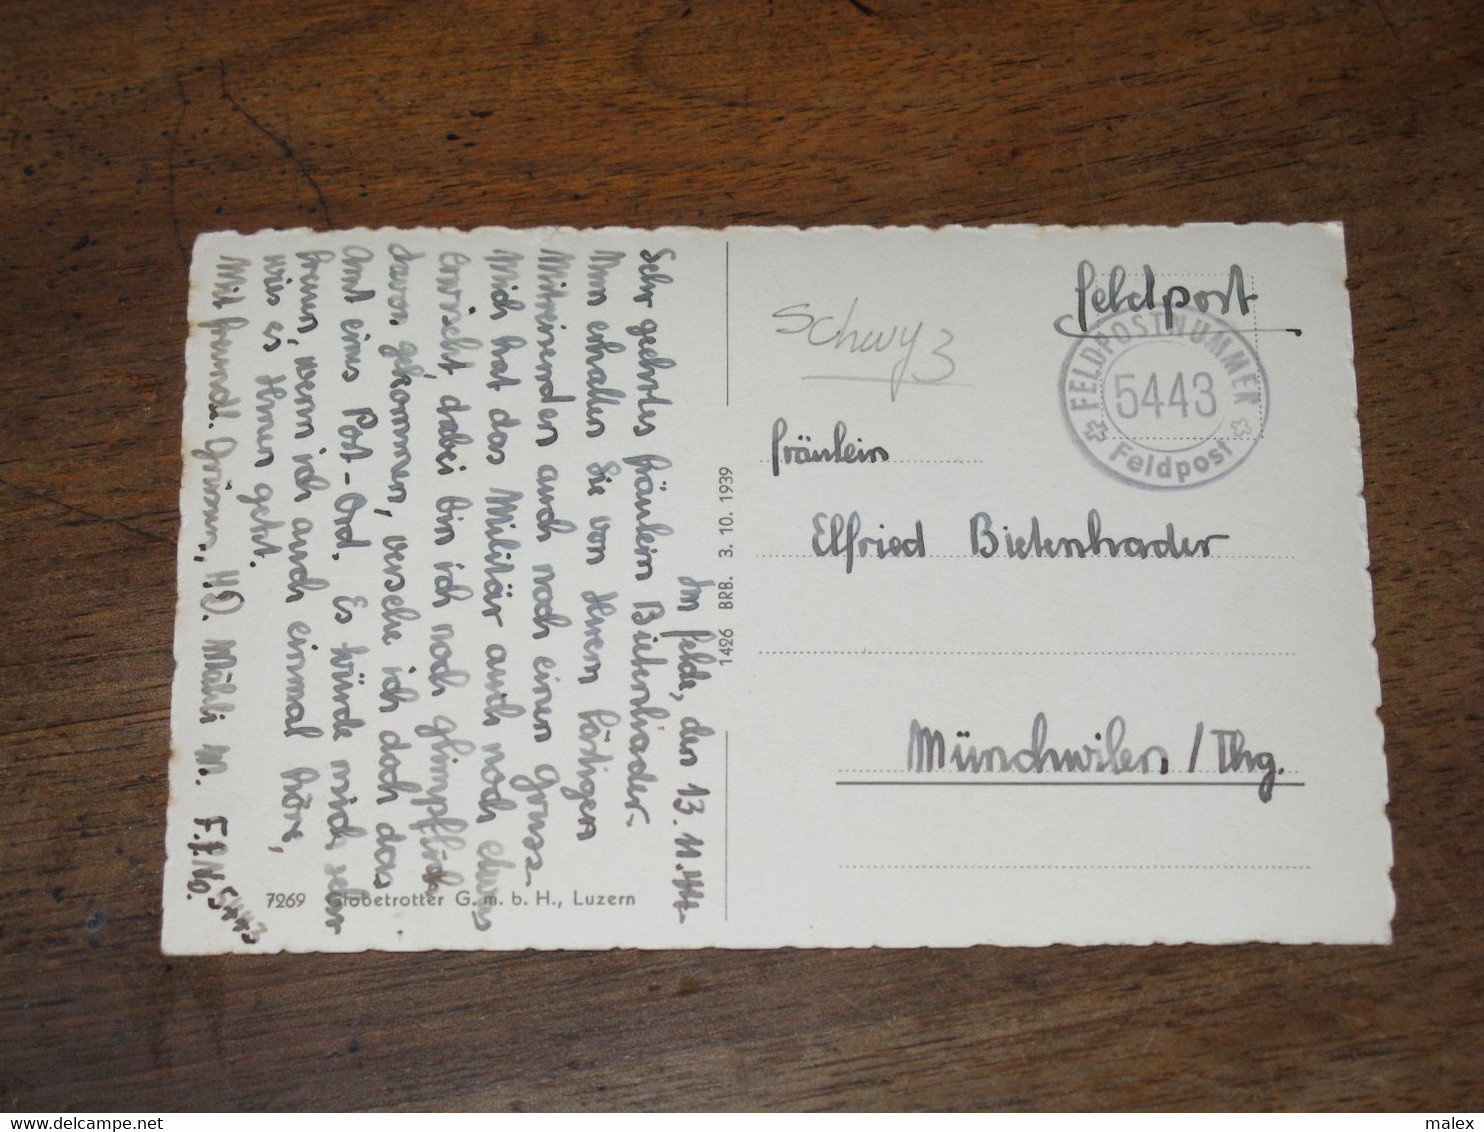 Im Felde, den 13.11.44.
Sehr geehrtes Fräulein Bietenhader.
Nun erhalten Sie von Ihrem lästigen
Mitreisenden auch noch einen Gruss.
Mich hat das Militär auch noch etwas
erwischt, dabei bin ich noch glimpflich
davon gekommen, versehe ich doch das
Amt eines Post-Ord. Es würde mich sehr
freuen, wenn ich auch einmal höre,
wies es Ihnen geht.
Mit freundl. Grüssen, H.O. Mähli M. F.P.No. 5443
7269 Globetrotter G. m. b. H., Luzern
1426 BRB. 3. 10. 1939
Schwyz
Feldpost
FELDPOSTNUMMER
5443
Feldpost
Fräulein
Elfried Bietenhader
Münchwilen / Thg.
www.delcampe.net
malex